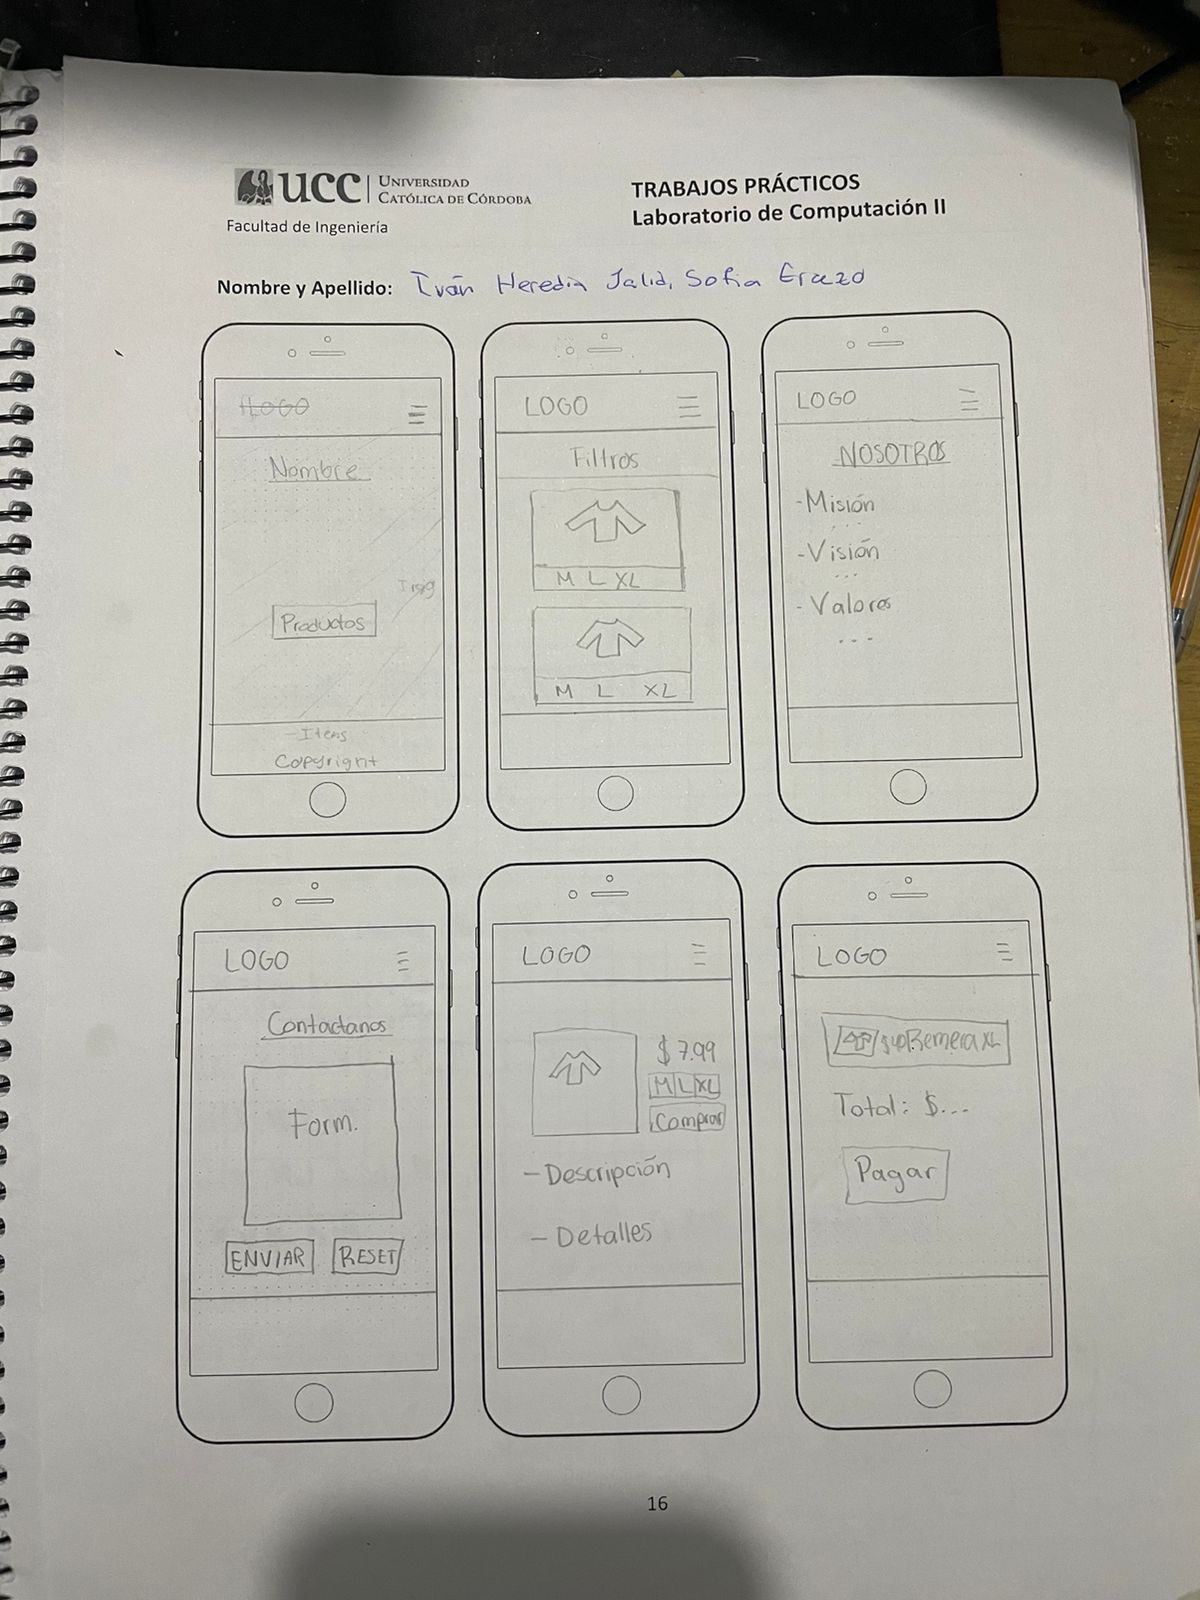 UCC UNIVERSIDAD
CATÓLICA DE CÓRDOBA
Facultad de Ingeniería
TRABAJOS PRÁCTICOS
Laboratorio de Computación II
Nombre y Apellido: Iván Heredia Jalid, Sofia Erazo
LOGO
Nombre
Productos
- Items
Copyright
LOGO
Filtros
M L XL
M L XL
LOGO
NOSOTROS
- Misión
...
- Visión
...
- Valores
...
LOGO
Contactanos
Form.
ENVIAR RESET
LOGO
$ 7.99
M L XL
Comprar
- Descripción
- Detalles
LOGO
Remera XL
Total: $...
Pagar
16